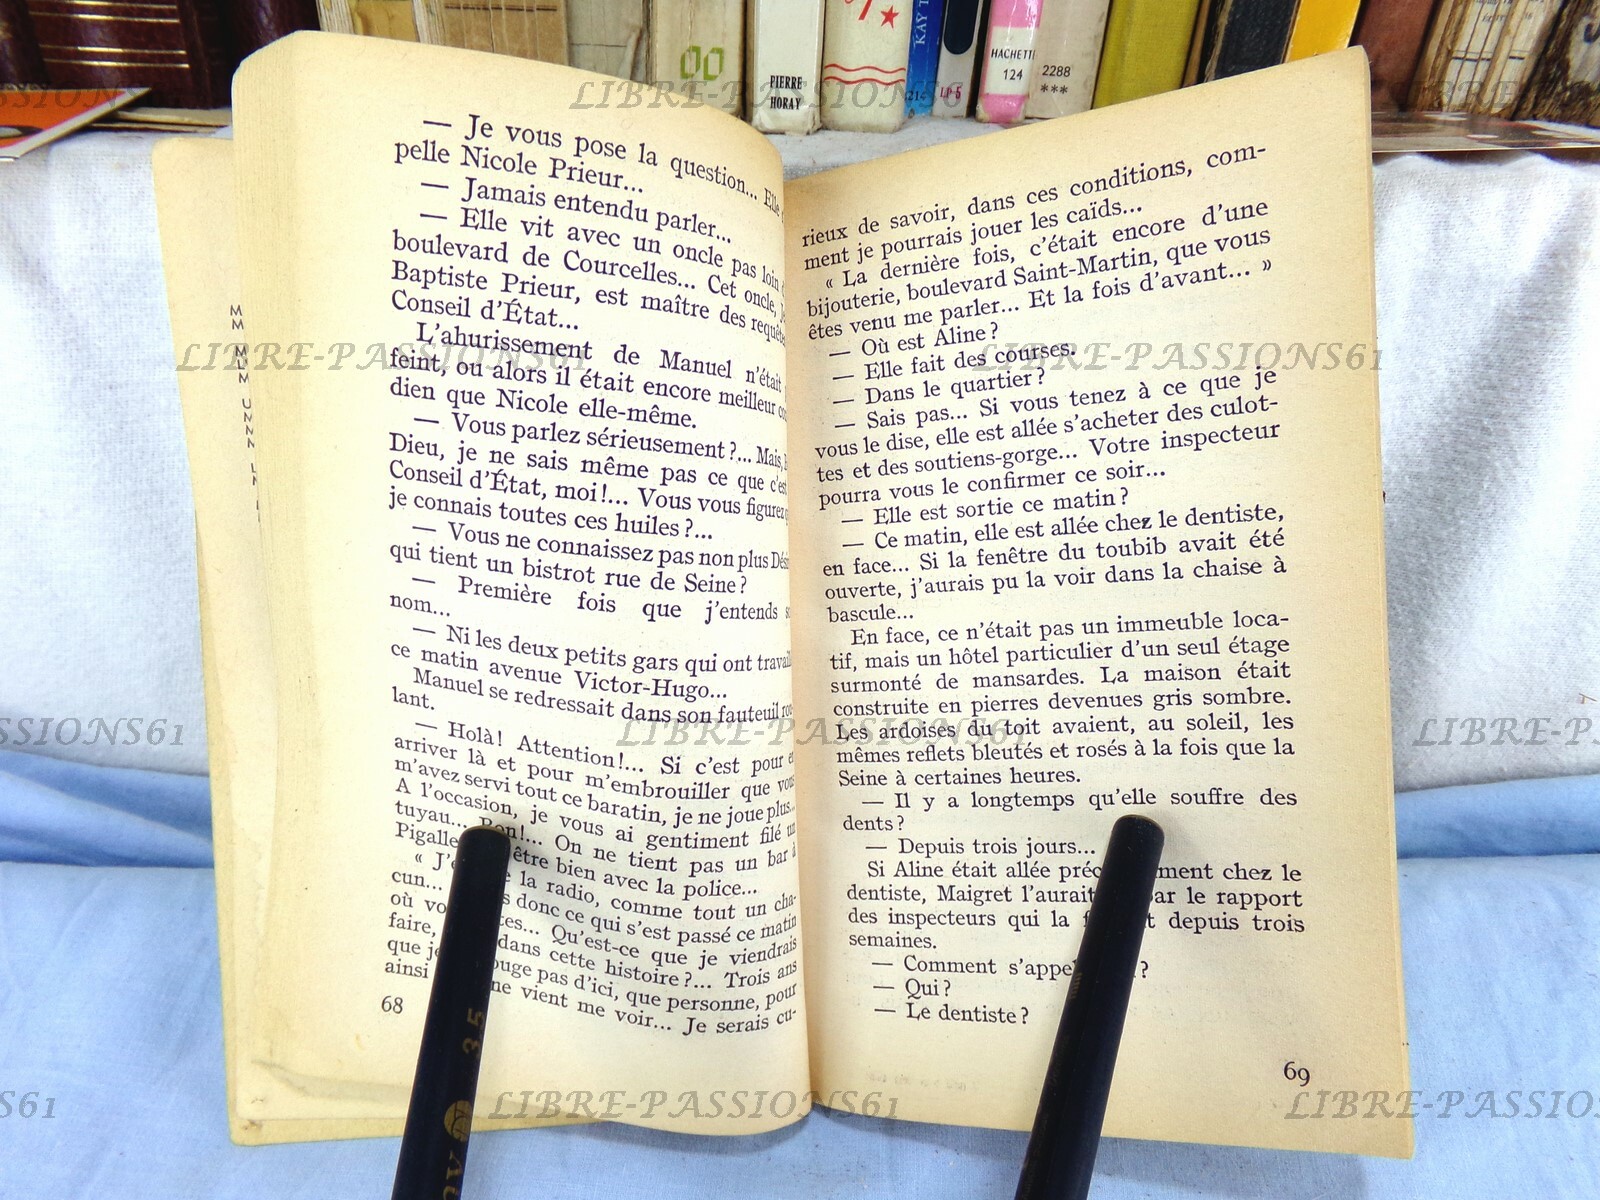 PIERRE
HORAY
KAY
HACHETTE
124
2288
***
LP 5
LIBRE-PASSIONS61
— Je vous pose la question... Elle
pelle Nicole Prieur...
— Jamais entendu parler...
— Elle vit avec un oncle pas loin
boulevard de Courcelles... Cet oncle,
Baptiste Prieur, est maître des
Conseil d'État...
L'ahurissement de Manuel n'était
feint, ou alors il était encore meilleur
dien que Nicole elle-même.
— Vous parlez sérieusement ?... Mais,
Dieu, je ne sais même pas ce que c'est
Conseil d'État, moi !... Vous vous figurez
je connais toutes ces huiles ?...
— Vous ne connaissez pas non plus
qui tient un bistrot rue de Seine ?
— Première fois que j'entends
nom...
— Ni les deux petits gars qui ont
ce matin avenue Victor-Hugo...
Manuel se redressait dans son fauteuil
lant.
— Holà ! Attention !... Si c'est pour
arriver là et pour m'embrouiller que vous
m'avez servi tout ce baratin, je ne joue plus...
A l'occasion, je vous ai gentiment filé un
tuyau... Bon !... On ne tient pas un bar à
Pigalle être bien avec la police...
« la radio, comme tout un cha-
cun... donc ce qui s'est passé ce matin
où Qu'est-ce que je viendrais
faire, dans cette histoire ?... Trois ans
que je pas d'ici, que personne, pour
ainsi ne vient me voir... Je serais cu-
68
rieux de savoir, dans ces conditions, com-
ment je pourrais jouer les caïds...
« La dernière fois, c'était encore d'une
bijouterie, boulevard Saint-Martin, que vous
êtes venu me parler... Et la fois d'avant... »
— Où est Aline ?
— Elle fait des courses.
— Dans le quartier ?
— Sais pas... Si vous tenez à ce que je
vous le dise, elle est allée s'acheter des culot-
tes et des soutiens-gorge... Votre inspecteur
pourra vous le confirmer ce soir...
— Elle est sortie ce matin ?
— Ce matin, elle est allée chez le dentiste,
en face... Si la fenêtre du toubib avait été
ouverte, j'aurais pu la voir dans la chaise à
bascule...
En face, ce n'était pas un immeuble loca-
tif, mais un hôtel particulier d'un seul étage
surmonté de mansardes. La maison était
construite en pierres devenues gris sombre.
Les ardoises du toit avaient, au soleil, les
mêmes reflets bleutés et rosés à la fois que la
Seine à certaines heures.
— Il y a longtemps qu'elle souffre des
dents ?
— Depuis trois jours...
Si Aline était allée chez le
dentiste, Maigret l'aurait par le rapport
des inspecteurs qui la depuis trois
semaines.
— Comment ?
— Qui ?
— Le dentiste ?
69
LIBRE-PASSIONS61
LIBRE-PASSIONS61
LIBRE-PASSIONS61
LIBRE-PASSIONS61
35